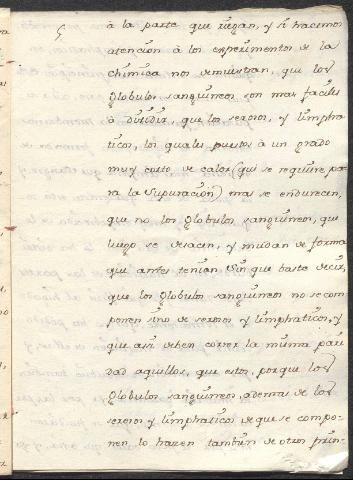 à la parte que riegan, y si hacemos
atencion à los experimentos de la
chimica nos demuestran, que los
Globulos sanguineos son mas faciles
à dividir, que los serosos, y limpha-
ticos, los quales puestos à un grado
muy corto de calor (qual se requiere pa-
ra la supuracion) mas se endurecen,
que no los Globulos sanguineos, que
luego se desacen, y mudan de forma
que antes tenian sin que baste decir,
que los Globulos sanguineos no se com-
ponen sino de serosos y limphaticos, y
que asi deben correr la misma pari-
dad aquellos, que estos, porque los
Globulos sanguineos, ademas de los
serosos y limphaticos de que se compo-
nen, lo hacen tambien de otros prin-